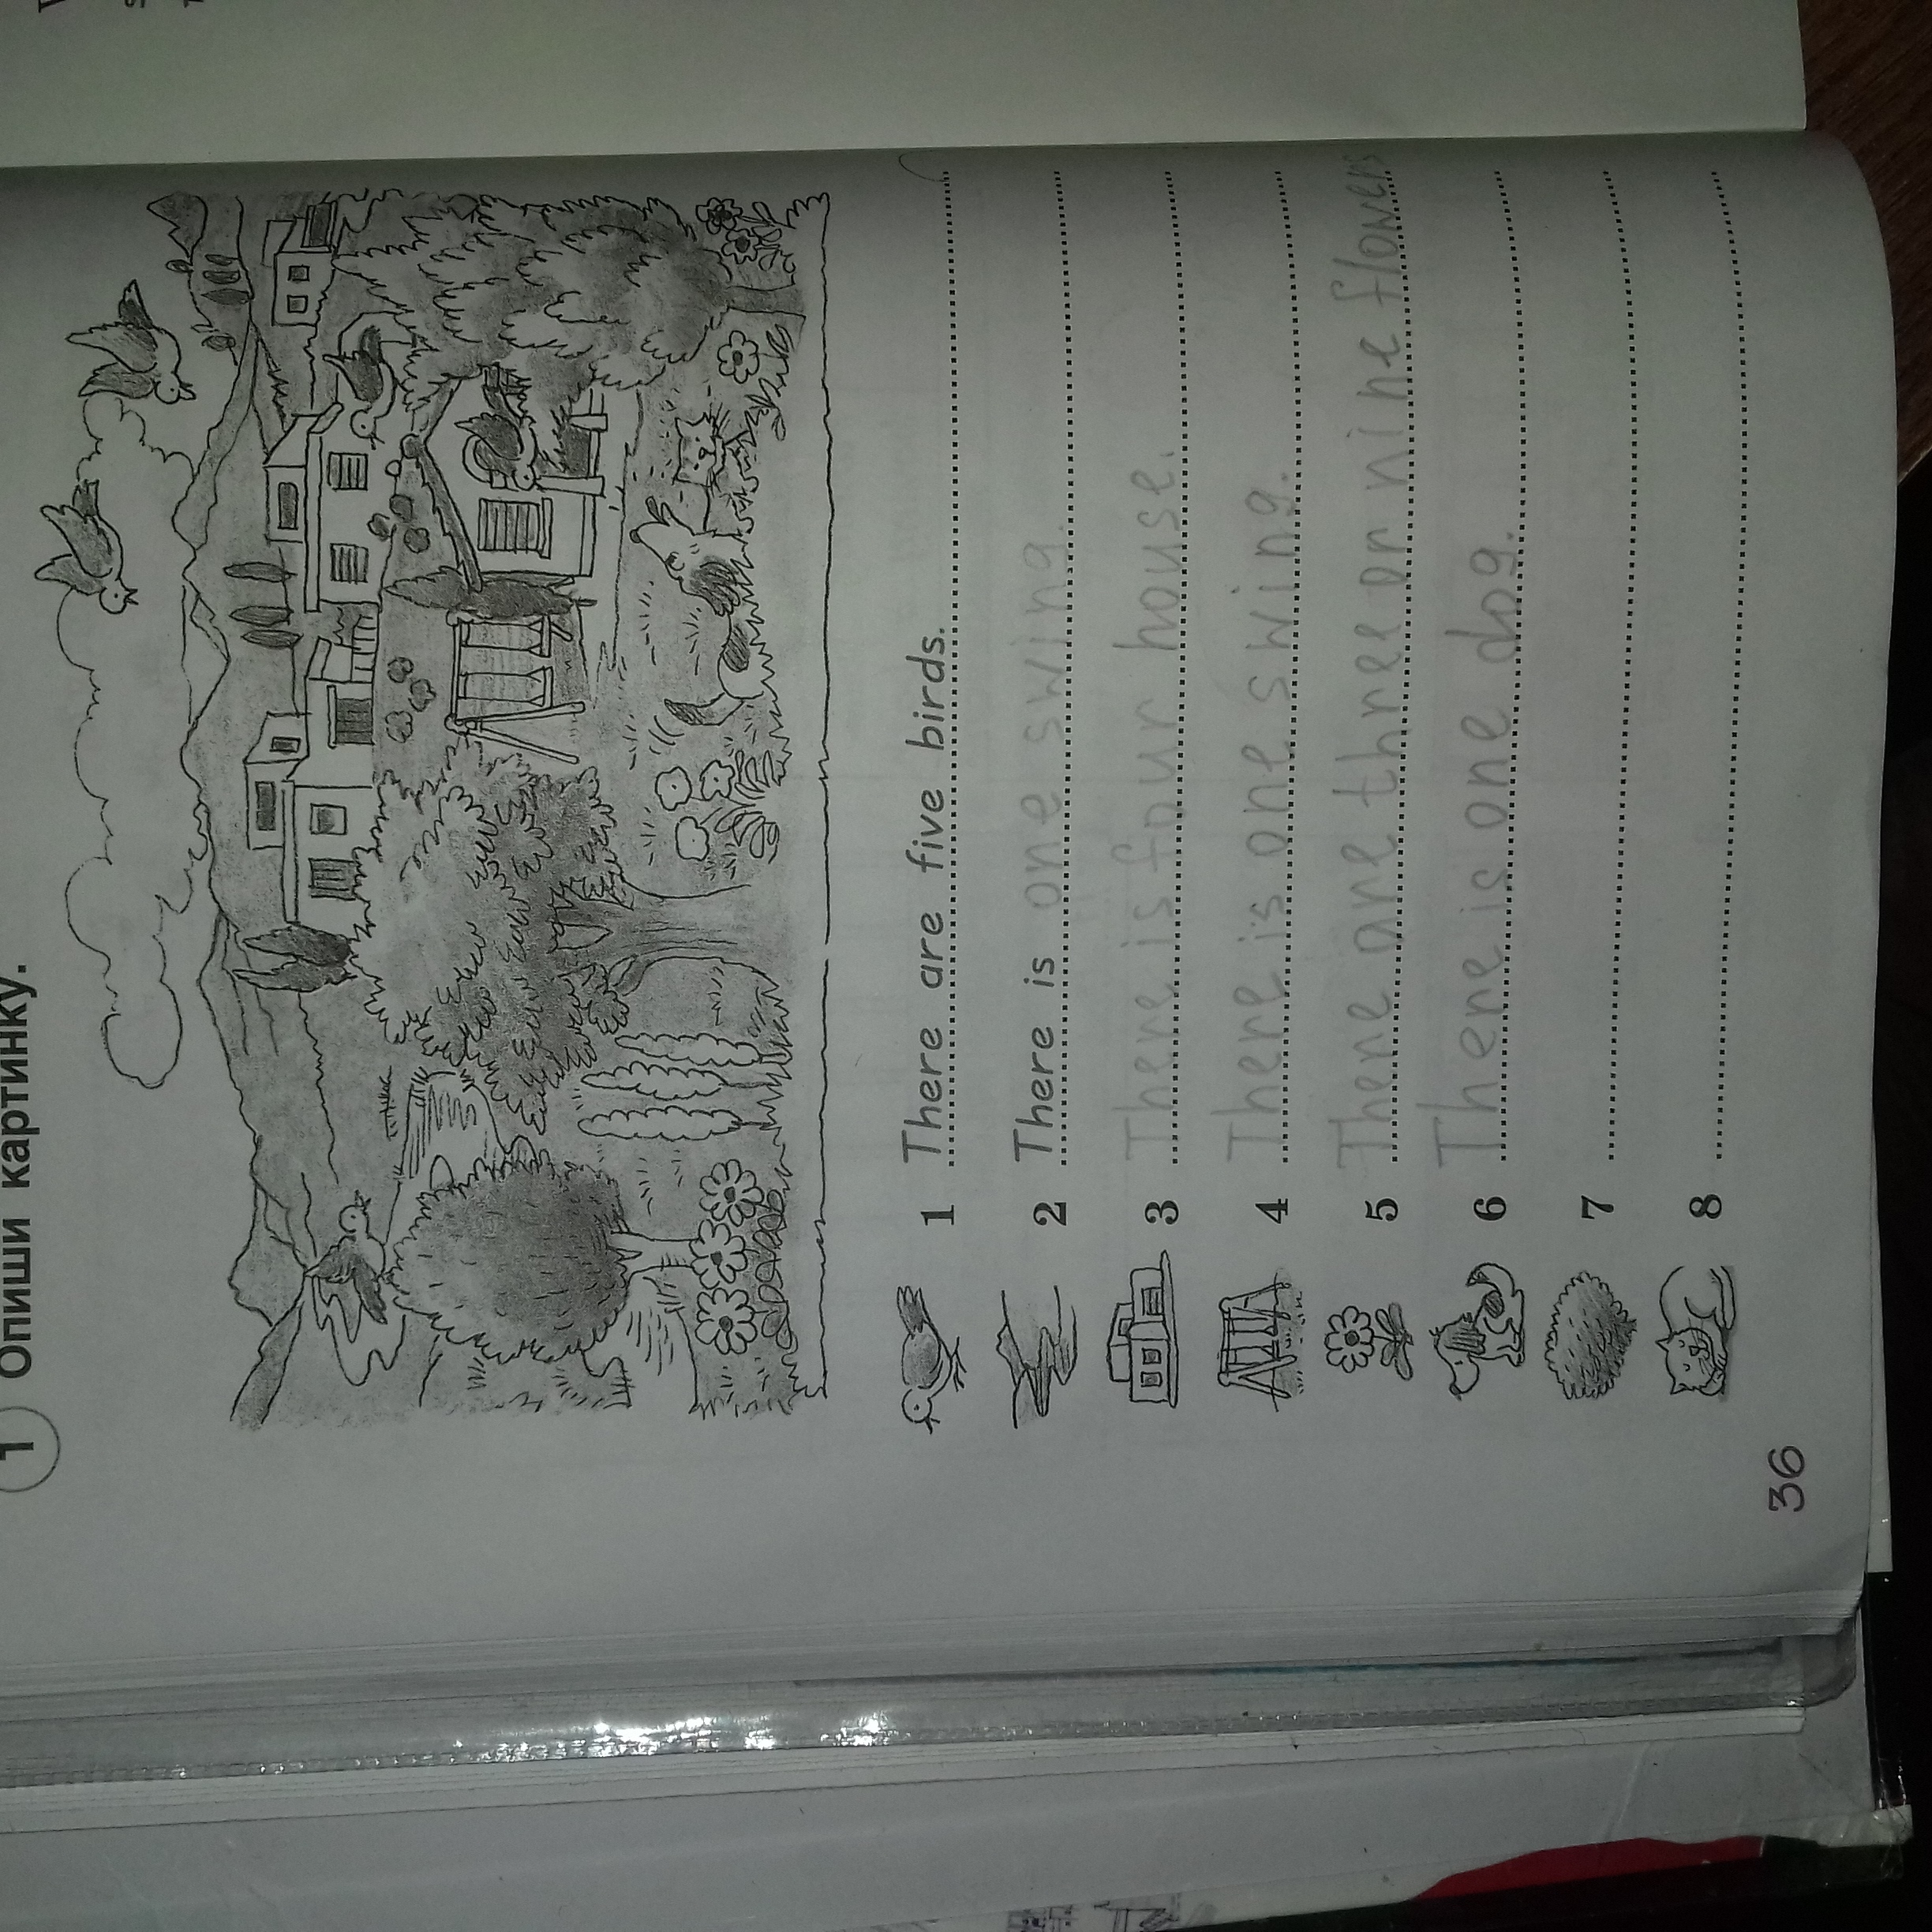 1 Опиши картинку.
1 There are five birds.
2 There is one swing.
3 There is four house.
4 There is one swing.
5 There are three or nine flowers
6 There is one dog.
7
8
36